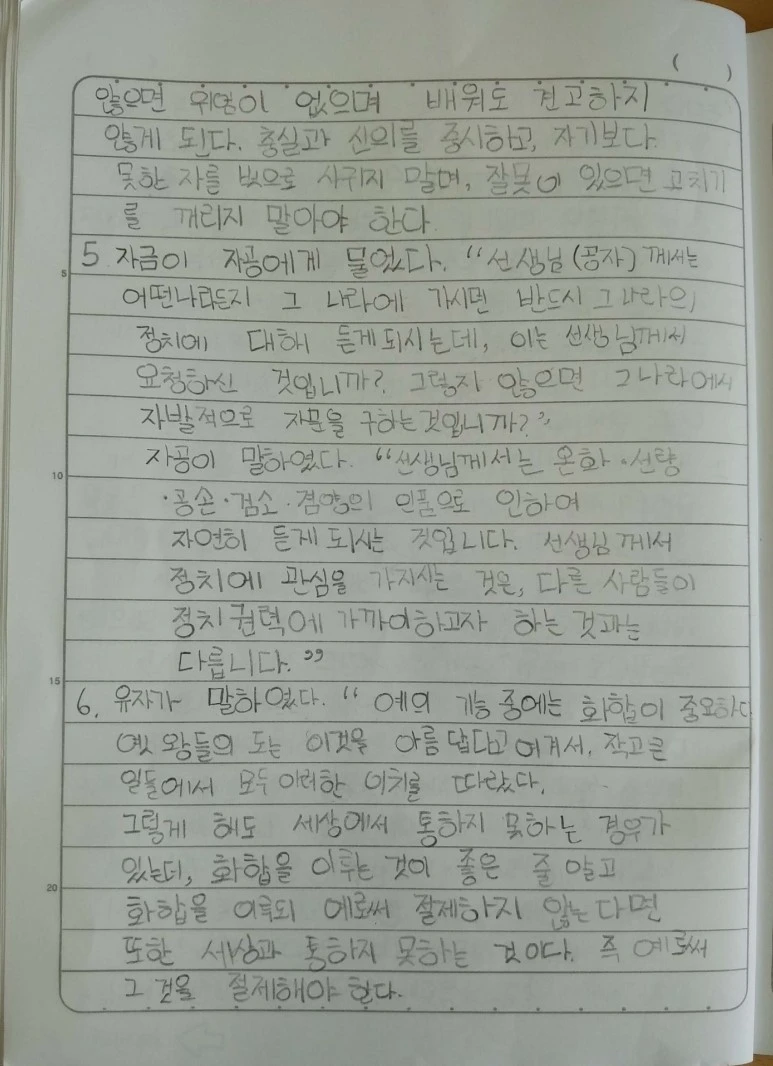 ( )
않으면 위엄이 없으며 배워도 견고하지
않게 된다. 충실과 신의를 중시하고, 자기보다
못한 자를 벗으로 사귀지 말며, 잘못이 있으면 고치기
를 꺼리지 말아야 한다.
5 자금이 자공에게 물었다. "선생님(공자)께서는
어떤나라든지 그 나라에 가시면 반드시 그나라의
정치에 대해 듣게되시는데, 이는 선생님께서
요청하신 것입니까? 그렇지 않으면 그나라에서
자발적으로 자문을 구하는것입니까?"
10 자공이 말하였다. "선생님께서는 온화·선량
·공손·검소·겸양의 인품으로 인하여
자연히 듣게 되시는 것입니다. 선생님께서
정치에 관심을 가지시는 것은, 다른 사람들이
정치권력에 가까이하고자 하는 것과는
15 다릅니다."
6. 유자가 말하였다. "예의 기능 중에는 화합이 중요하다
옛 왕들의 도는 이것을 아름답다고 여겨서, 작고큰
일들에서 모두 이러한 이치를 따랐다.
그렇게 해도 세상에서 통하지 못하는 경우가
20 있는데, 화합을 이루는 것이 좋은 줄 알고
화합을 이루되 예로써 절제하지 않는다면
또한 세상과 통하지 못하는 것이다. 즉 예로써
그것을 절제해야 한다.